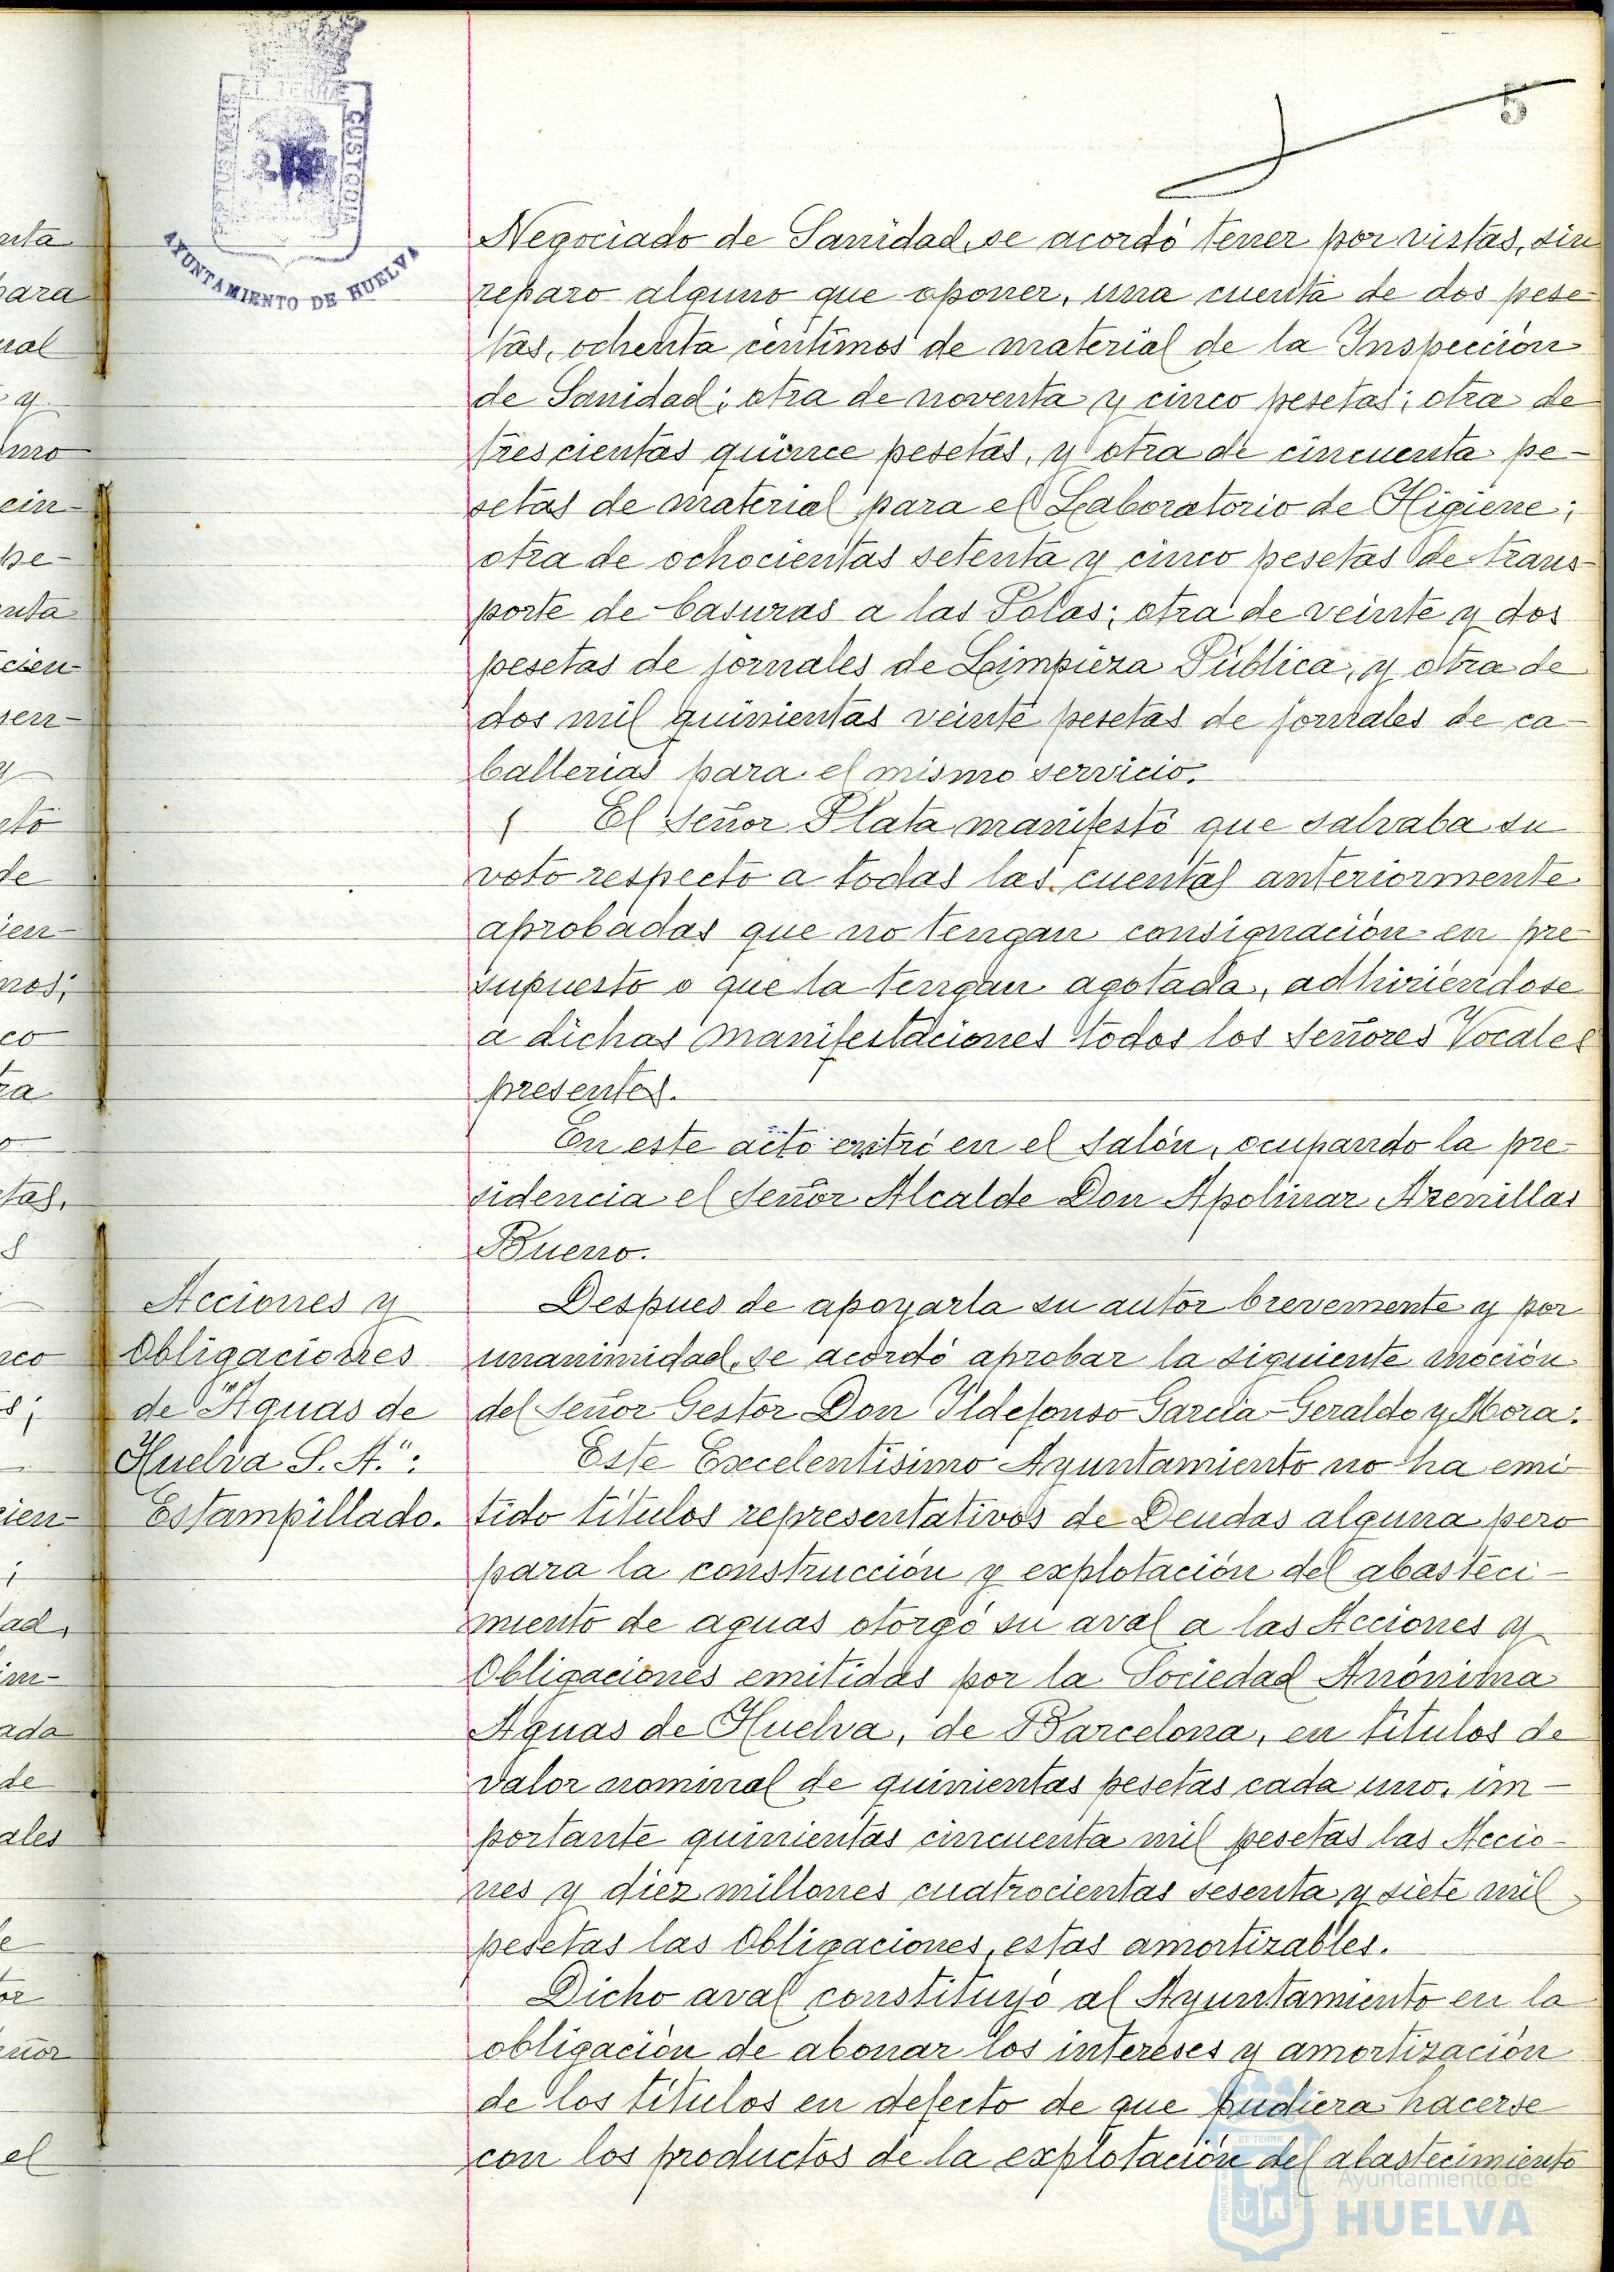 5
ET TERRÆ
CUSTODIA
AYUNTAMIENTO DE HUELVA
Negociado de Sanidad, se acordó tener por vistas, sin
reparo alguno que oponer, una cuenta de dos pese-
tas, ochenta centimos de material de la Inspección
de Sanidad; otra de noventa y cinco pesetas; otra de
trescientas quince pesetas, y otra de cincuenta pe-
setas de material para el Laboratorio de Higiene;
otra de ochocientas setenta y cinco pesetas de trans-
porte de basuras a las Polas; otra de veinte y dos
pesetas de jornales de Limpieza Pública, y otra de
dos mil quinientas veinte pesetas de jornales de ca-
ballerias para el mismo servicio.
El Señor Plata manifestó que salvaba su
voto respecto a todas las cuentas anteriormente
aprobadas que no tengan consignación en pre-
supuesto o que la tengan agotada, adhiriéndose
a dichas manifestaciones todos los Señores Vocales
presentes.
En este acto entró en el Salón, ocupando la pre-
sidencia el Señor Alcalde Don Apolinar Arenillas
Bueno.
Acciones y
Obligaciones
de "Aguas de
Huelva S. A.":
Estampillado.
Despues de apoyarla su autor brevemente y por
unanimidad, se acordó aprobar la siguiente moción
del Señor Gestor Don Ildefonso García-Geraldo y Mora:
Este Excelentísimo Ayuntamiento no ha emi-
tido títulos representativos de Deudas alguna pero
para la construcción y explotación del abasteci-
miento de aguas otorgó su aval a las Acciones y
Obligaciones emitidas por la Sociedad Anónima
Aguas de Huelva, de Barcelona, en títulos de
valor nominal de quinientas pesetas cada uno, im-
portante quinientas cincuenta mil pesetas las Accio-
nes y diez millones cuatrocientas sesenta y siete mil
pesetas las Obligaciones, estas amortizables.
Dicho aval constituyó al Ayuntamiento en la
obligación de abonar los intereses y amortización
de los títulos en defecto de que pudiera hacerse
con los productos de la explotación del abastecimiento
Ayuntamiento de
HUELVA